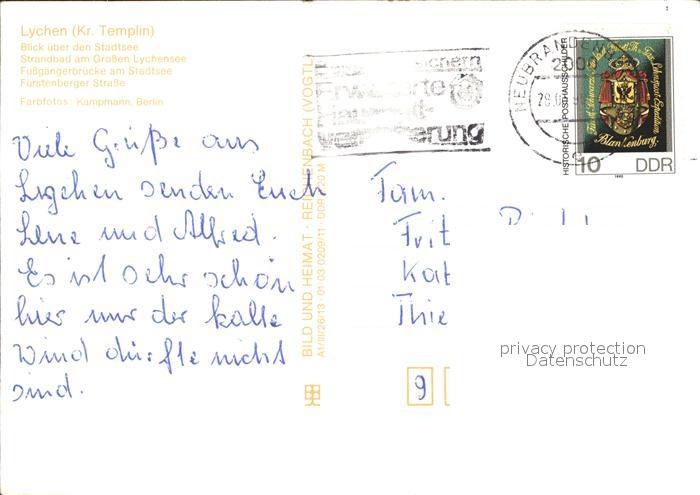 Lychen (Kr. Templin)
Blick über den Stadtsee
Strandbad am Großen Lychensee
Fußgängerbrücke am Stadtsee
Fürstenberger Straße
Farbfotos: Kümpmann, Berlin
Viele Grüße aus
Lychen senden Euch
Lene und Alfred.
Es ist sehr schön
hier nur der kalte
Wind dürfte nicht
sind.
BILD UND HEIMAT · REICHENBACH (VOGTL)
A1/III/26/13 · 01 03 0209/11 · DDR
Erweiterte
NEUBRANDEN
200
HISTORISCHE POSTHAUSSCHILDER
Blankenburg.
10 DDR
1990
Fam.
Frit
Kat
Thie
9
privacy protection
Datenschutz